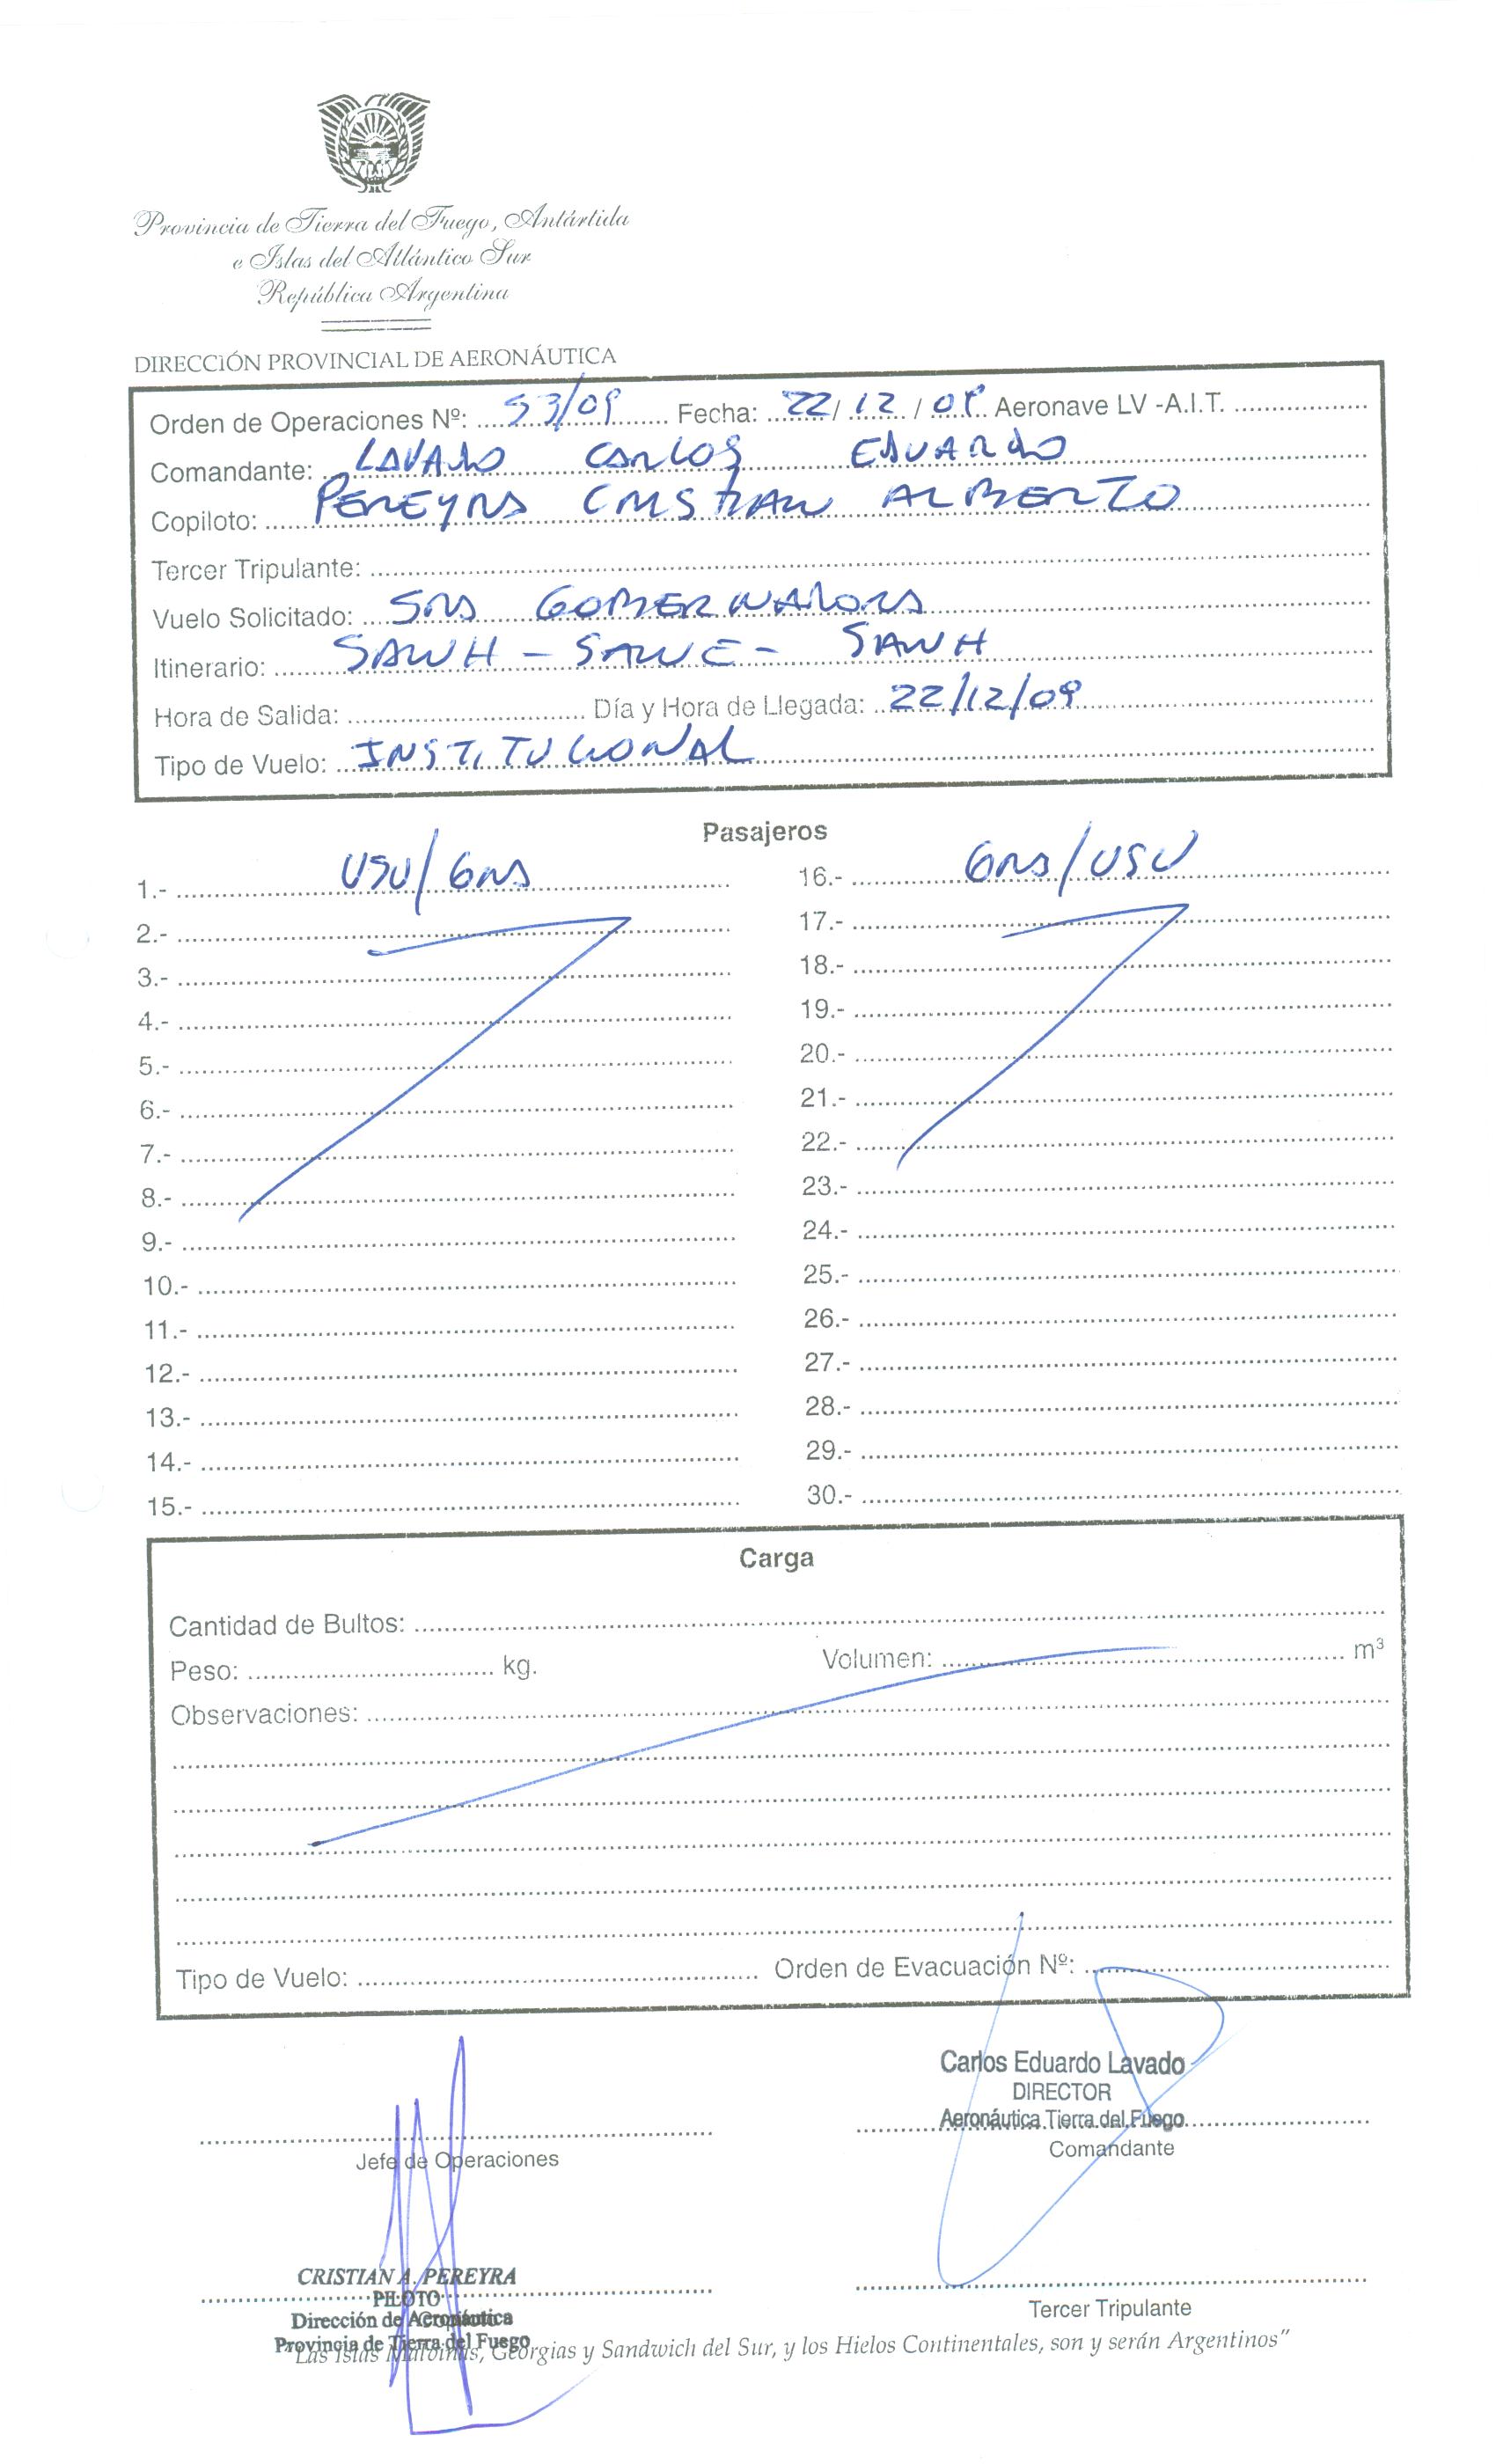 Provincia de Tierra del Fuego, Antártida
e Islas del Atlántico Sur
República Argentina
DIRECCIÓN PROVINCIAL DE AERONÁUTICA
Orden de Operaciones Nº: 53/09 Fecha: 22/12/09 Aeronave LV -A.I.T.
Comandante: LAVADO CARLOS EDUARDO
Copiloto: PEREYRA CRISTIAN ALBERTO
Tercer Tripulante:
Vuelo Solicitado: SRA GOBERNADORA
Itinerario: SAWH - SAWE - SAWH
Hora de Salida: Día y Hora de Llegada: 22/12/09
Tipo de Vuelo: INSTITUCIONAL
Pasajeros
1.- USU/GRA 16.- GRA/USU
2.- 17.-
3.- 18.-
4.- 19.-
5.- 20.-
6.- 21.-
7.- 22.-
8.- 23.-
9.- 24.-
10.- 25.-
11.- 26.-
12.- 27.-
13.- 28.-
14.- 29.-
15.- 30.-
Carga
Cantidad de Bultos:
Peso: kg. Volumen: m³
Observaciones:
Tipo de Vuelo: Orden de Evacuación Nº:
Carlos Eduardo Lavado
DIRECTOR
Aeronáutica Tierra del Fuego
Jefe de Operaciones Comandante
CRISTIAN A. PEREYRA
PILOTO
Dirección de Aeronáutica
Tercer Tripulante
Provincia de Tierra del Fuego
Las Islas Malvinas, Georgias y Sandwich del Sur, y los Hielos Continentales, son y serán Argentinos"